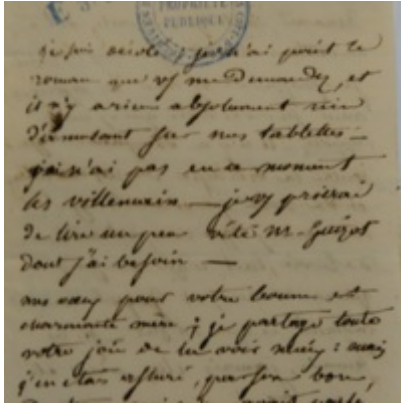 E
PROPRIÉTÉ
PUBLIQUE
je suis désolé, je n'ai point le
roman que vs me Demandez, et
il n'y a rien absolument rien
d'amusant sur mes tablettes —
je n'ai pas en ce moment
les villemain — je vs prierai
de lire un peu vite Mr Guizot
dont j'ai besoin —
mes vœux pour votre bonne et
charmante mère ; je partage toute
votre joie de la voir mieux : mais
j'en étais assuré, par son bon,